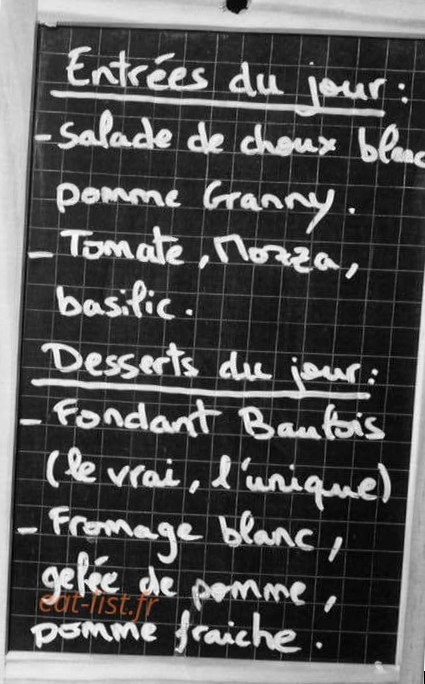 Entrées du jour :
- Salade de choux blanc
pomme Granny.
- Tomate, Mozza,
basilic.
Desserts du jour :
- Fondant Baulois
(le vrai, l'unique)
- Fromage blanc,
gelée de pomme,
eat-list.fr
pomme fraiche.